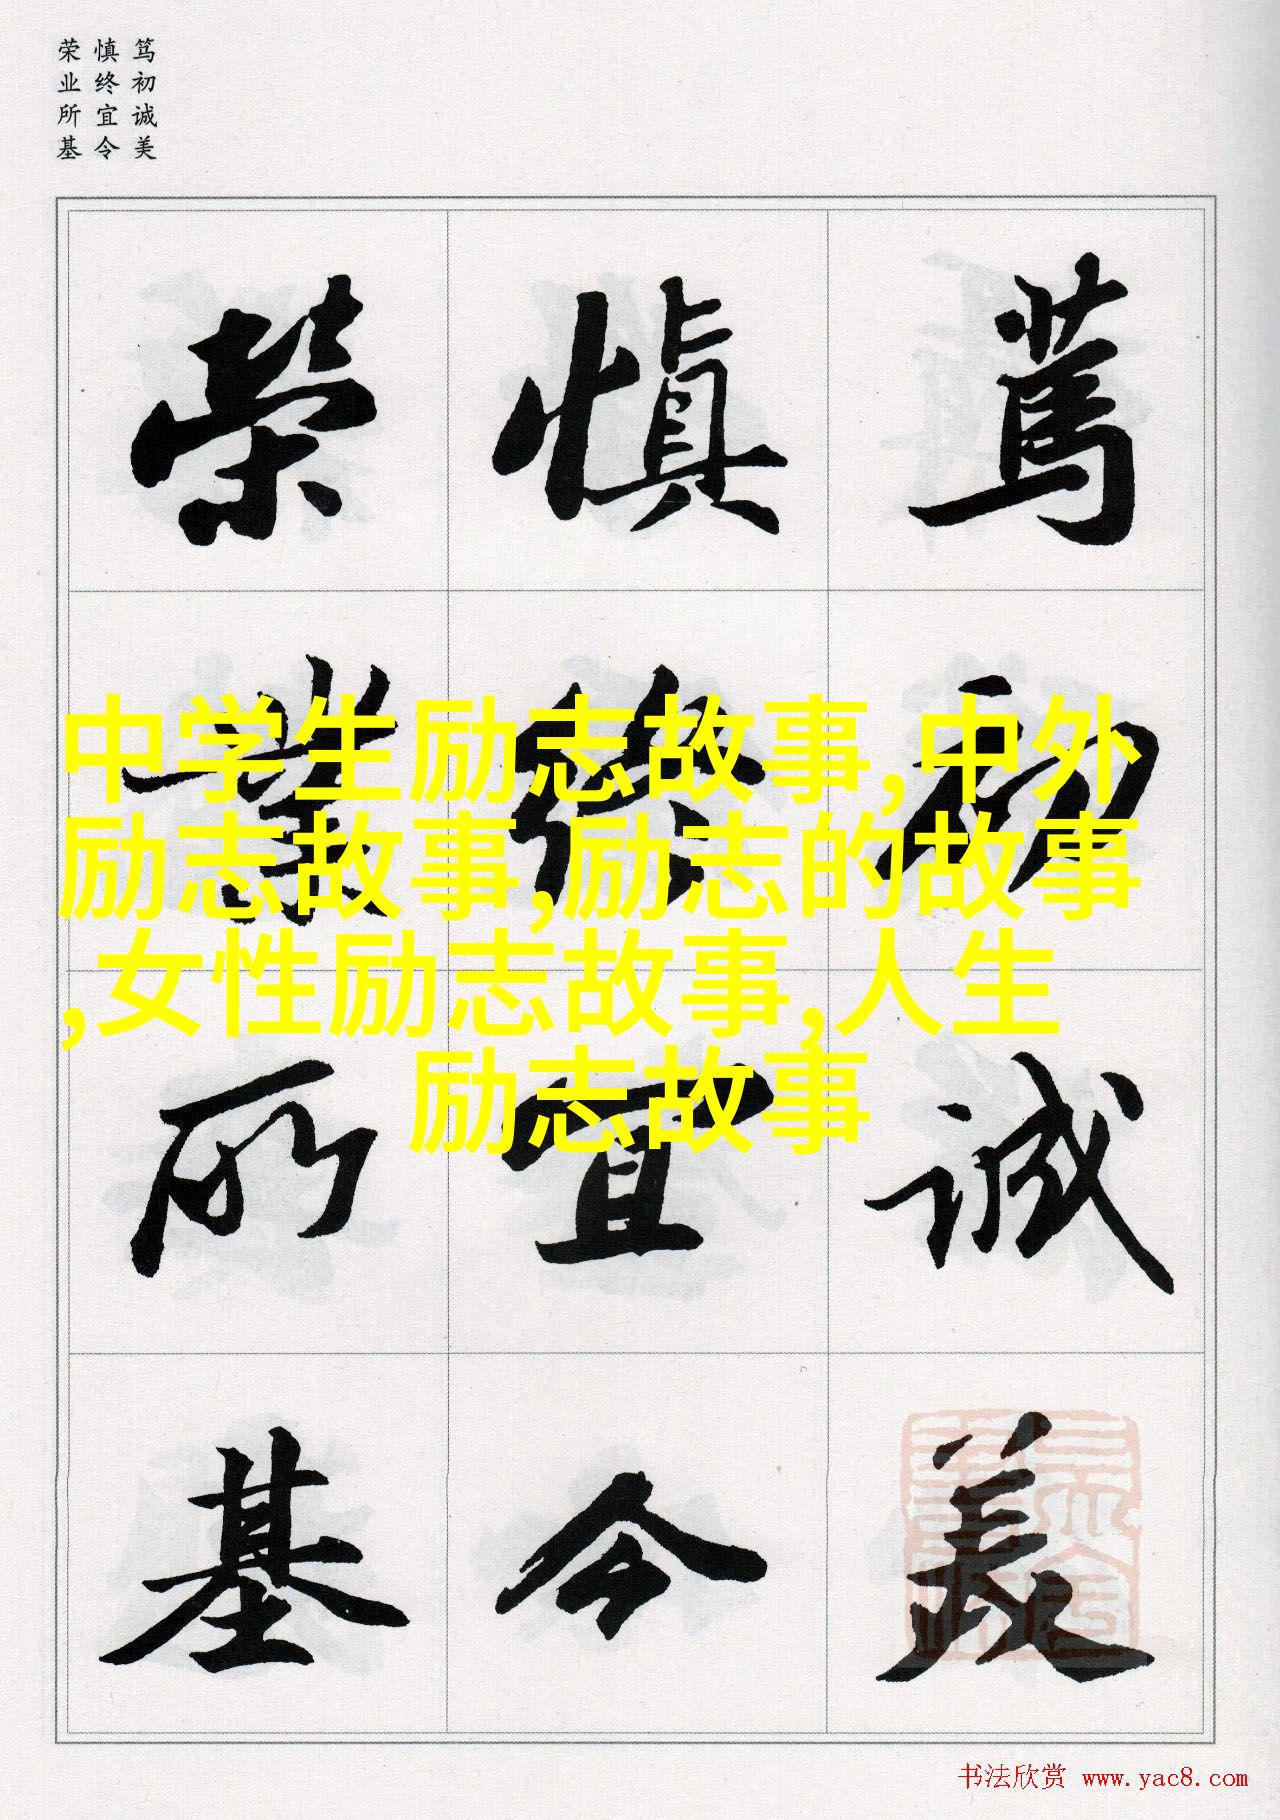 笃初诚美
慎终宜令
荣业所基
篤初誠美
慎終宜令
榮業所基
中学生励志故事,中外
励志故事,励志的故事
,女性励志故事,人生
励志故事
书法欣赏 www.yac8.com